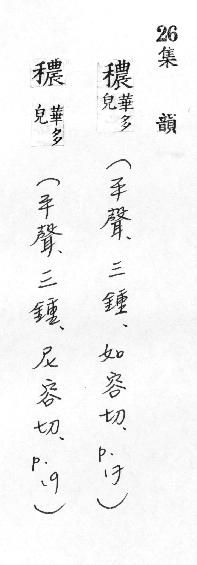 26集韻
穠華多皃(平聲、三鍾、如容切、p.17)
穠華多皃(平聲、三鍾、尼容切、p.19)